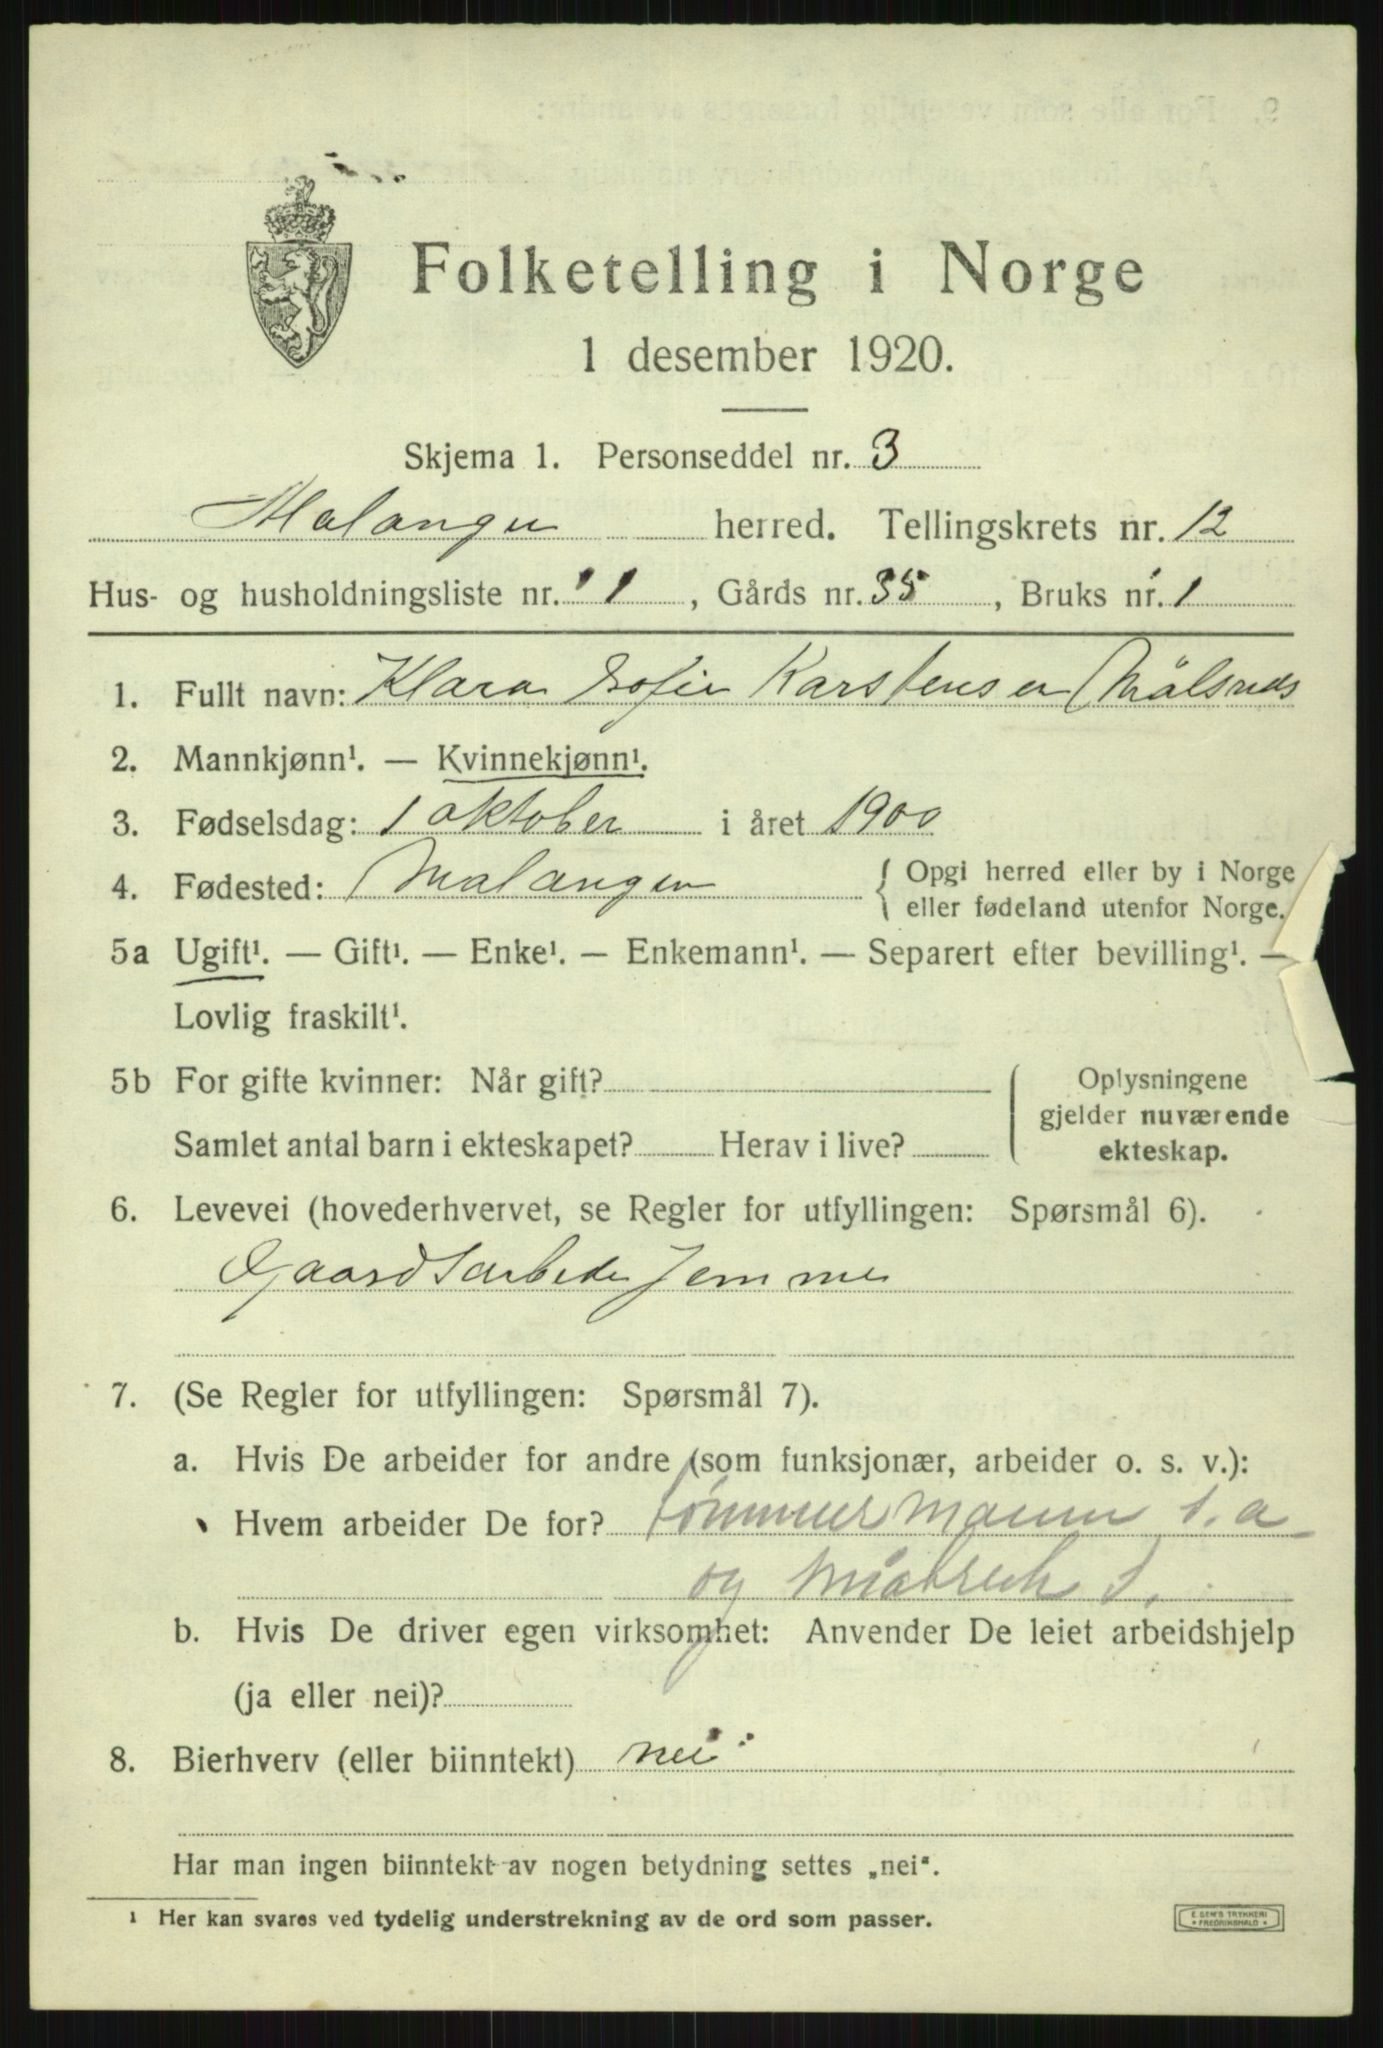 Folketelling i Norge
1 desember 1920.
Skjema 1. Personseddel nr. 3
Malangen herred. Tellingskrets nr. 12
Hus- og husholdningsliste nr. 1, Gårds nr. 35, Bruks nr. 1
1. Fullt navn: Klara Sofie Karstensen Målsnes
2. Mannkjønn¹. — Kvinnekjønn¹.
3. Fødselsdag: 1 oktober i året 1900
4. Fødested: Malangen { Opgi herred eller by i Norge
eller fødeland utenfor Norge.
5a Ugift¹. — Gift¹. — Enke¹. — Enkemann¹. — Separert efter bevilling¹. —
Lovlig fraskilt¹.
5b For gifte kvinner: Når gift?
Samlet antal barn i ekteskapet? Herav i live?
Oplysningene
gjelder nuværende
ekteskap.
6. Levevei (hovederhvervet, se Regler for utfyllingen: Spørsmål 6).
Gaardsarbeide hjemme
7. (Se Regler for utfyllingen: Spørsmål 7).
a. Hvis De arbeider for andre (som funksjonær, arbeider o. s. v.):
Hvem arbeider De for? tømmermann s. a
og
b. Hvis De driver egen virksomhet: Anvender De leiet arbeidshjelp
(ja eller nei)?
8. Bierhverv (eller biinntekt) nei
Har man ingen biinntekt av nogen betydning settes „nei“.
¹ Her kan svares ved tydelig understrekning av de ord som passer.
E. SEM'S TRYKKERI
FREDRIKSHALD